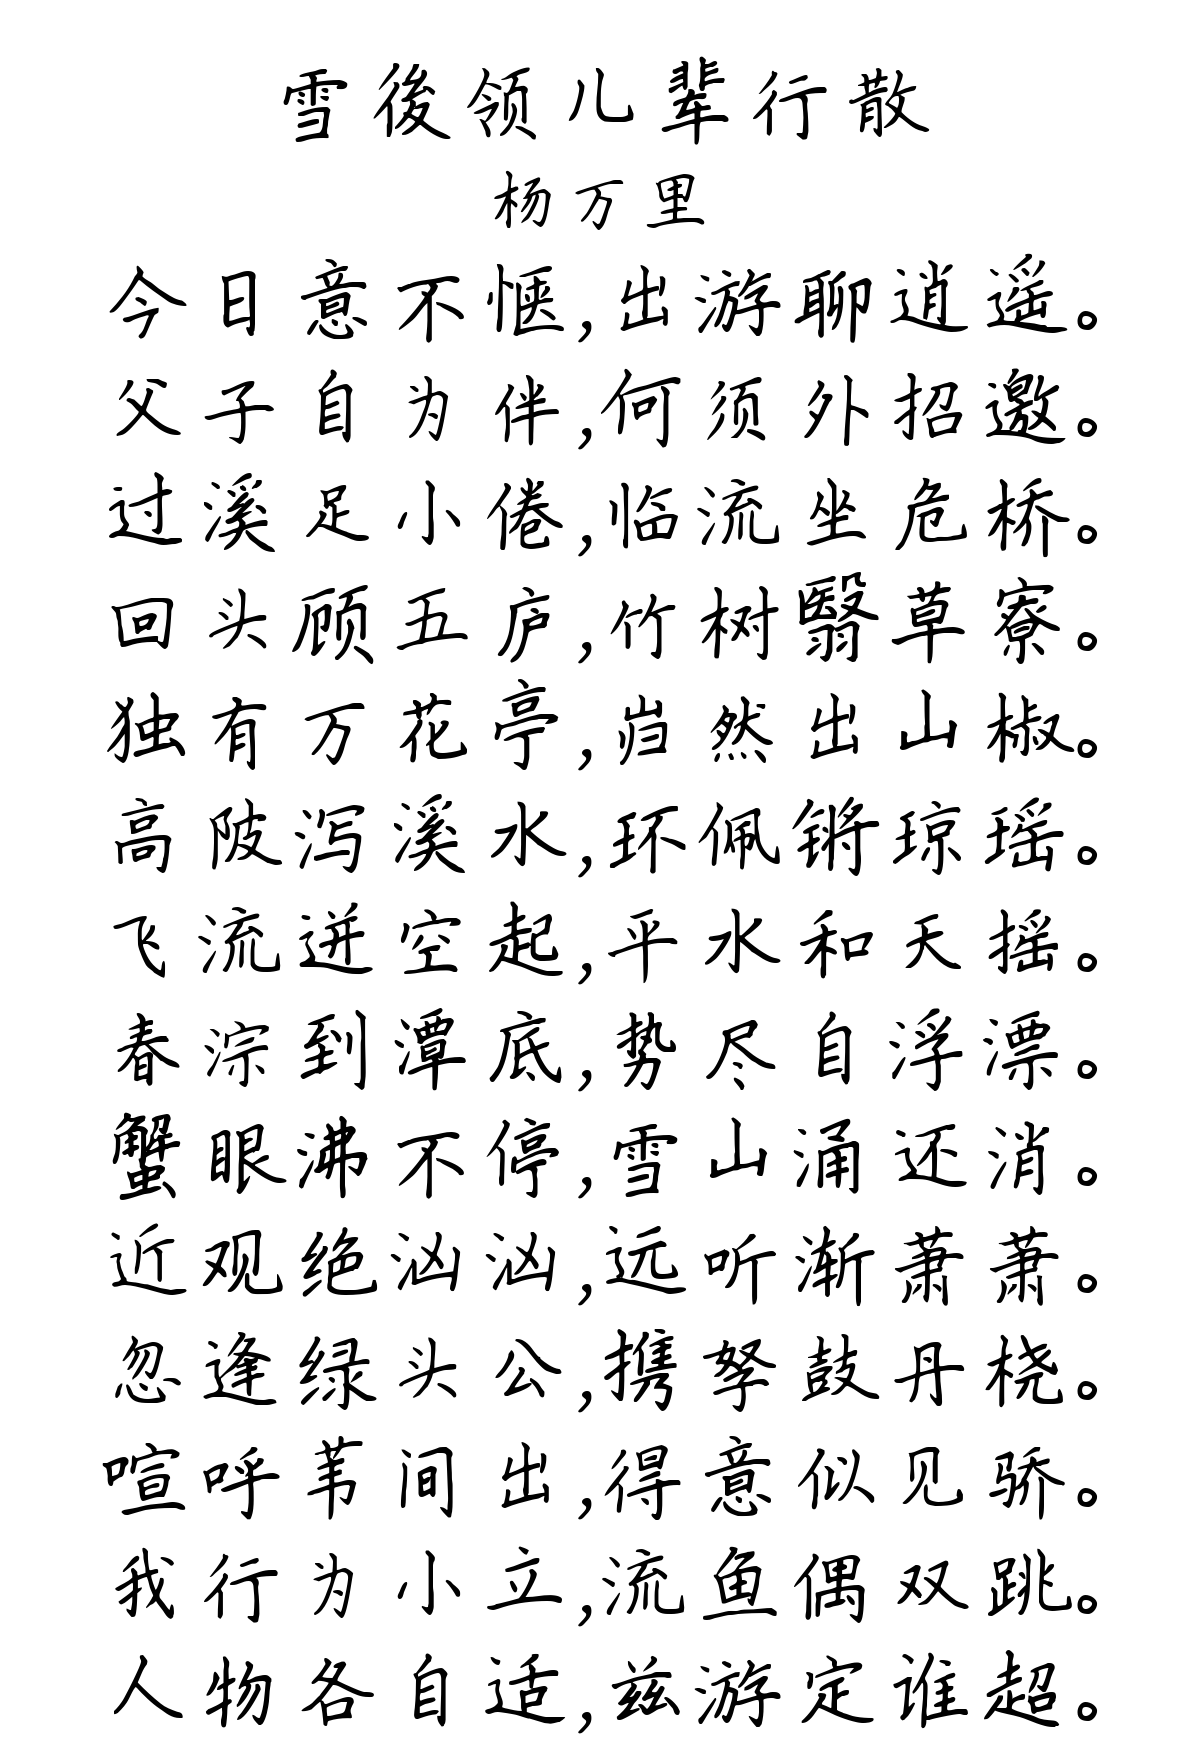 雪後领儿辈行散
杨万里
今日意不惬,出游聊逍遥。
父子自为伴,何须外招邀。
过溪足小倦,临流坐危桥。
回头顾五庐,竹树翳草寮。
独有万花亭,岿然出山椒。
高陂泻溪水,环佩锵琼瑶。
飞流迸空起,平水和天摇。
春淙到潭底,势尽自浮漂。
蟹眼沸不停,雪山涌还消。
近观绝汹汹,远听渐萧萧。
忽逢绿头公,携孥鼓丹桡。
喧呼苇间出,得意似见骄。
我行为小立,流鱼偶双跳。
人物各自适,兹游定谁超。